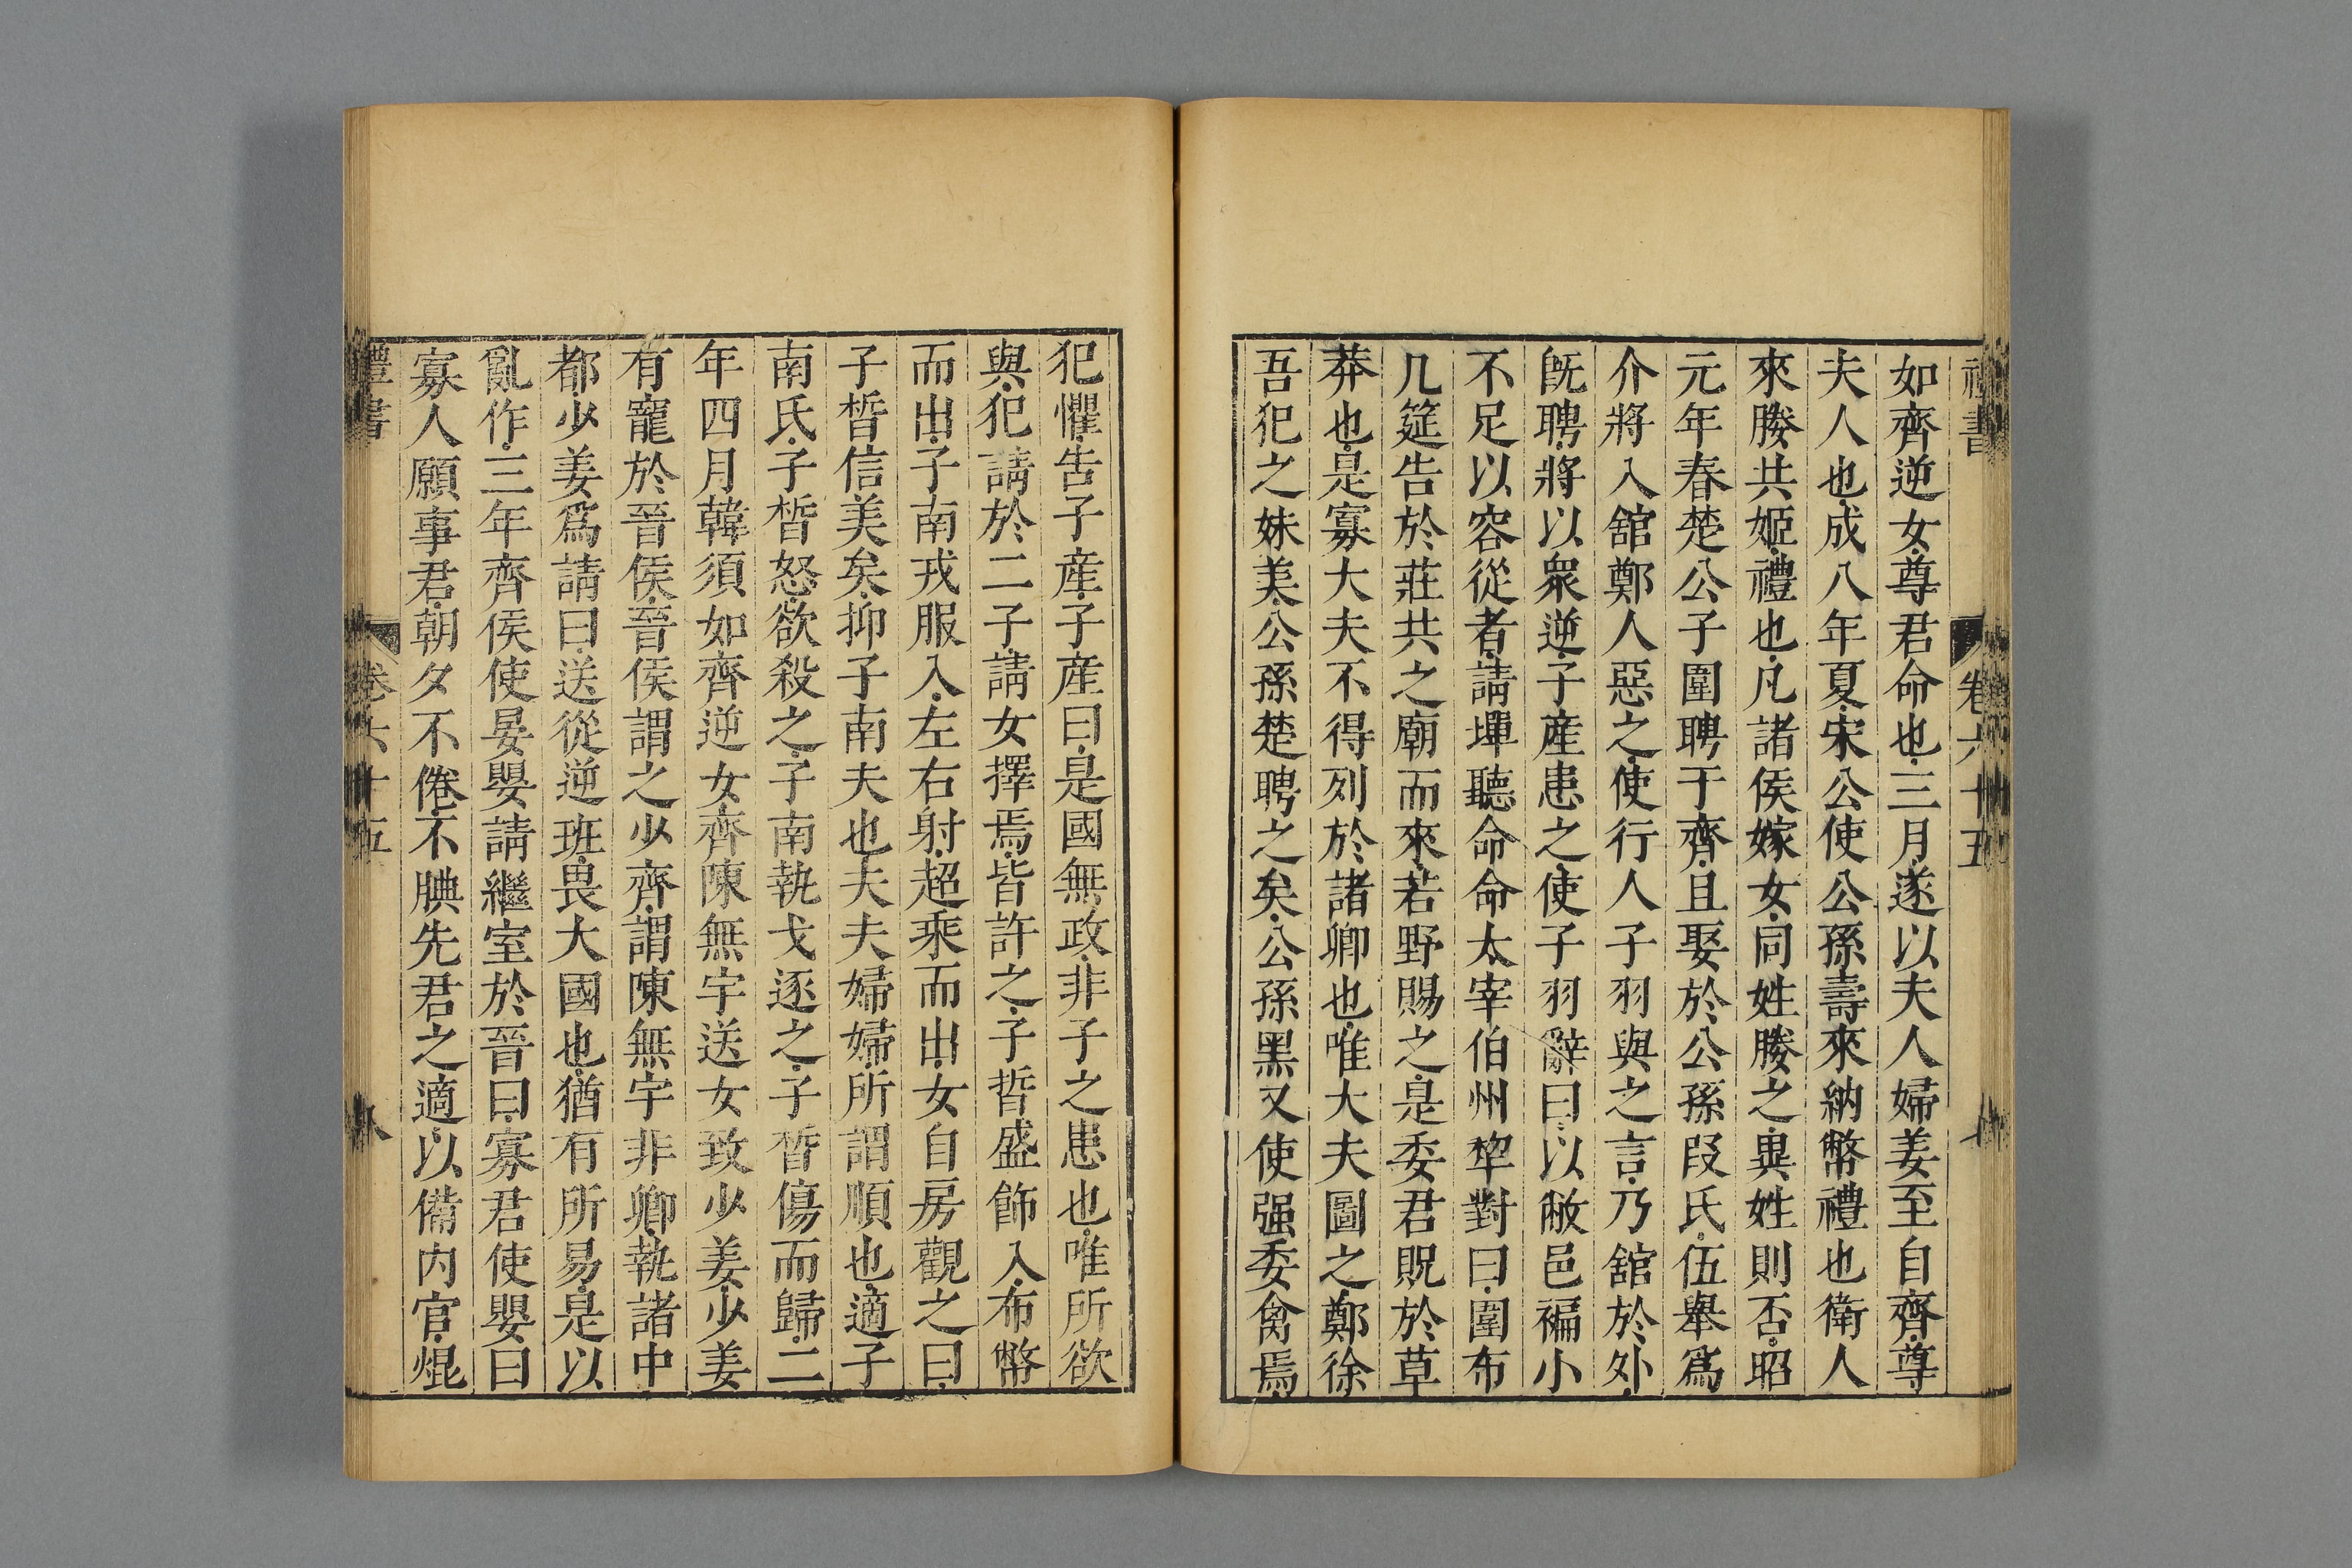 禮書 卷六十五
如齊逆女尊君命也三月遂以夫人婦姜至自齊尊
夫人也成八年夏宋公使公孫壽來納幣禮也衛人
來媵共姬禮也凡諸侯嫁女同姓媵之異姓則否昭
元年春楚公子圍聘于齊且娶於公孫段氏伍舉爲
介將入舘鄭人惡之使行人子羽與之言乃舘於外
旣聘將以衆逆子產患之使子羽辭曰以敝邑褊小
不足以容從者請墠聽命命太宰伯州犂對曰圍布
几筵告於莊共之廟而來若野賜之是委君貺於草
莽也是寡大夫不得列於諸卿也唯大夫圖之鄭徐
吾犯之妹美公孫楚聘之矣公孫黑又使强委禽焉
犯懼告子產子產曰是國無政非子之患也唯所欲
與犯請於二子請女擇焉皆許之子晳盛飾入布幣
而出子南戎服入左右射超乘而出女自房觀之曰
子晳信美矣抑子南夫也夫夫婦婦所謂順也適子
南氏子晳怒欲殺之子南執戈逐之子晳傷而歸二
年四月韓須如齊逆女齊陳無宇送女致少姜少姜
有寵於晉侯晉侯謂之少齊謂陳無宇非卿執諸中
都少姜爲請曰送從逆班畏大國也猶有所易是以
亂作三年齊侯使晏嬰請繼室於晉曰寡君使嬰曰
寡人願事君朝夕不倦不腆先君之適以備内官焜
禮書 卷六十五 八